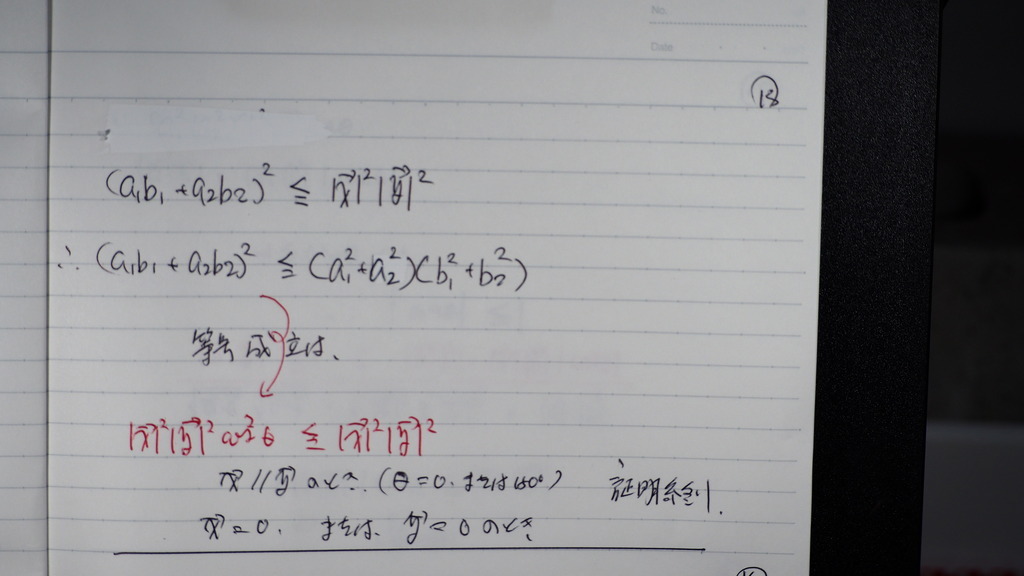 No.
Date
⑬
(a₁b₁+a₂b₂)² ≦ |x⃗|²|y⃗|²
∴ (a₁b₁+a₂b₂)² ≦ (a₁²+a₂²)(b₁²+b₂²)
等号成立は、
|x⃗|²|y⃗|²cos²θ ≦ |x⃗|²|y⃗|²
x⃗ // y⃗ のとき. (θ=0. または180°)
証明終り.
x⃗=0. または、 y⃗=0 のとき